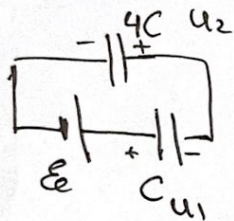 - 4C + U2
ℰ + C U1 -